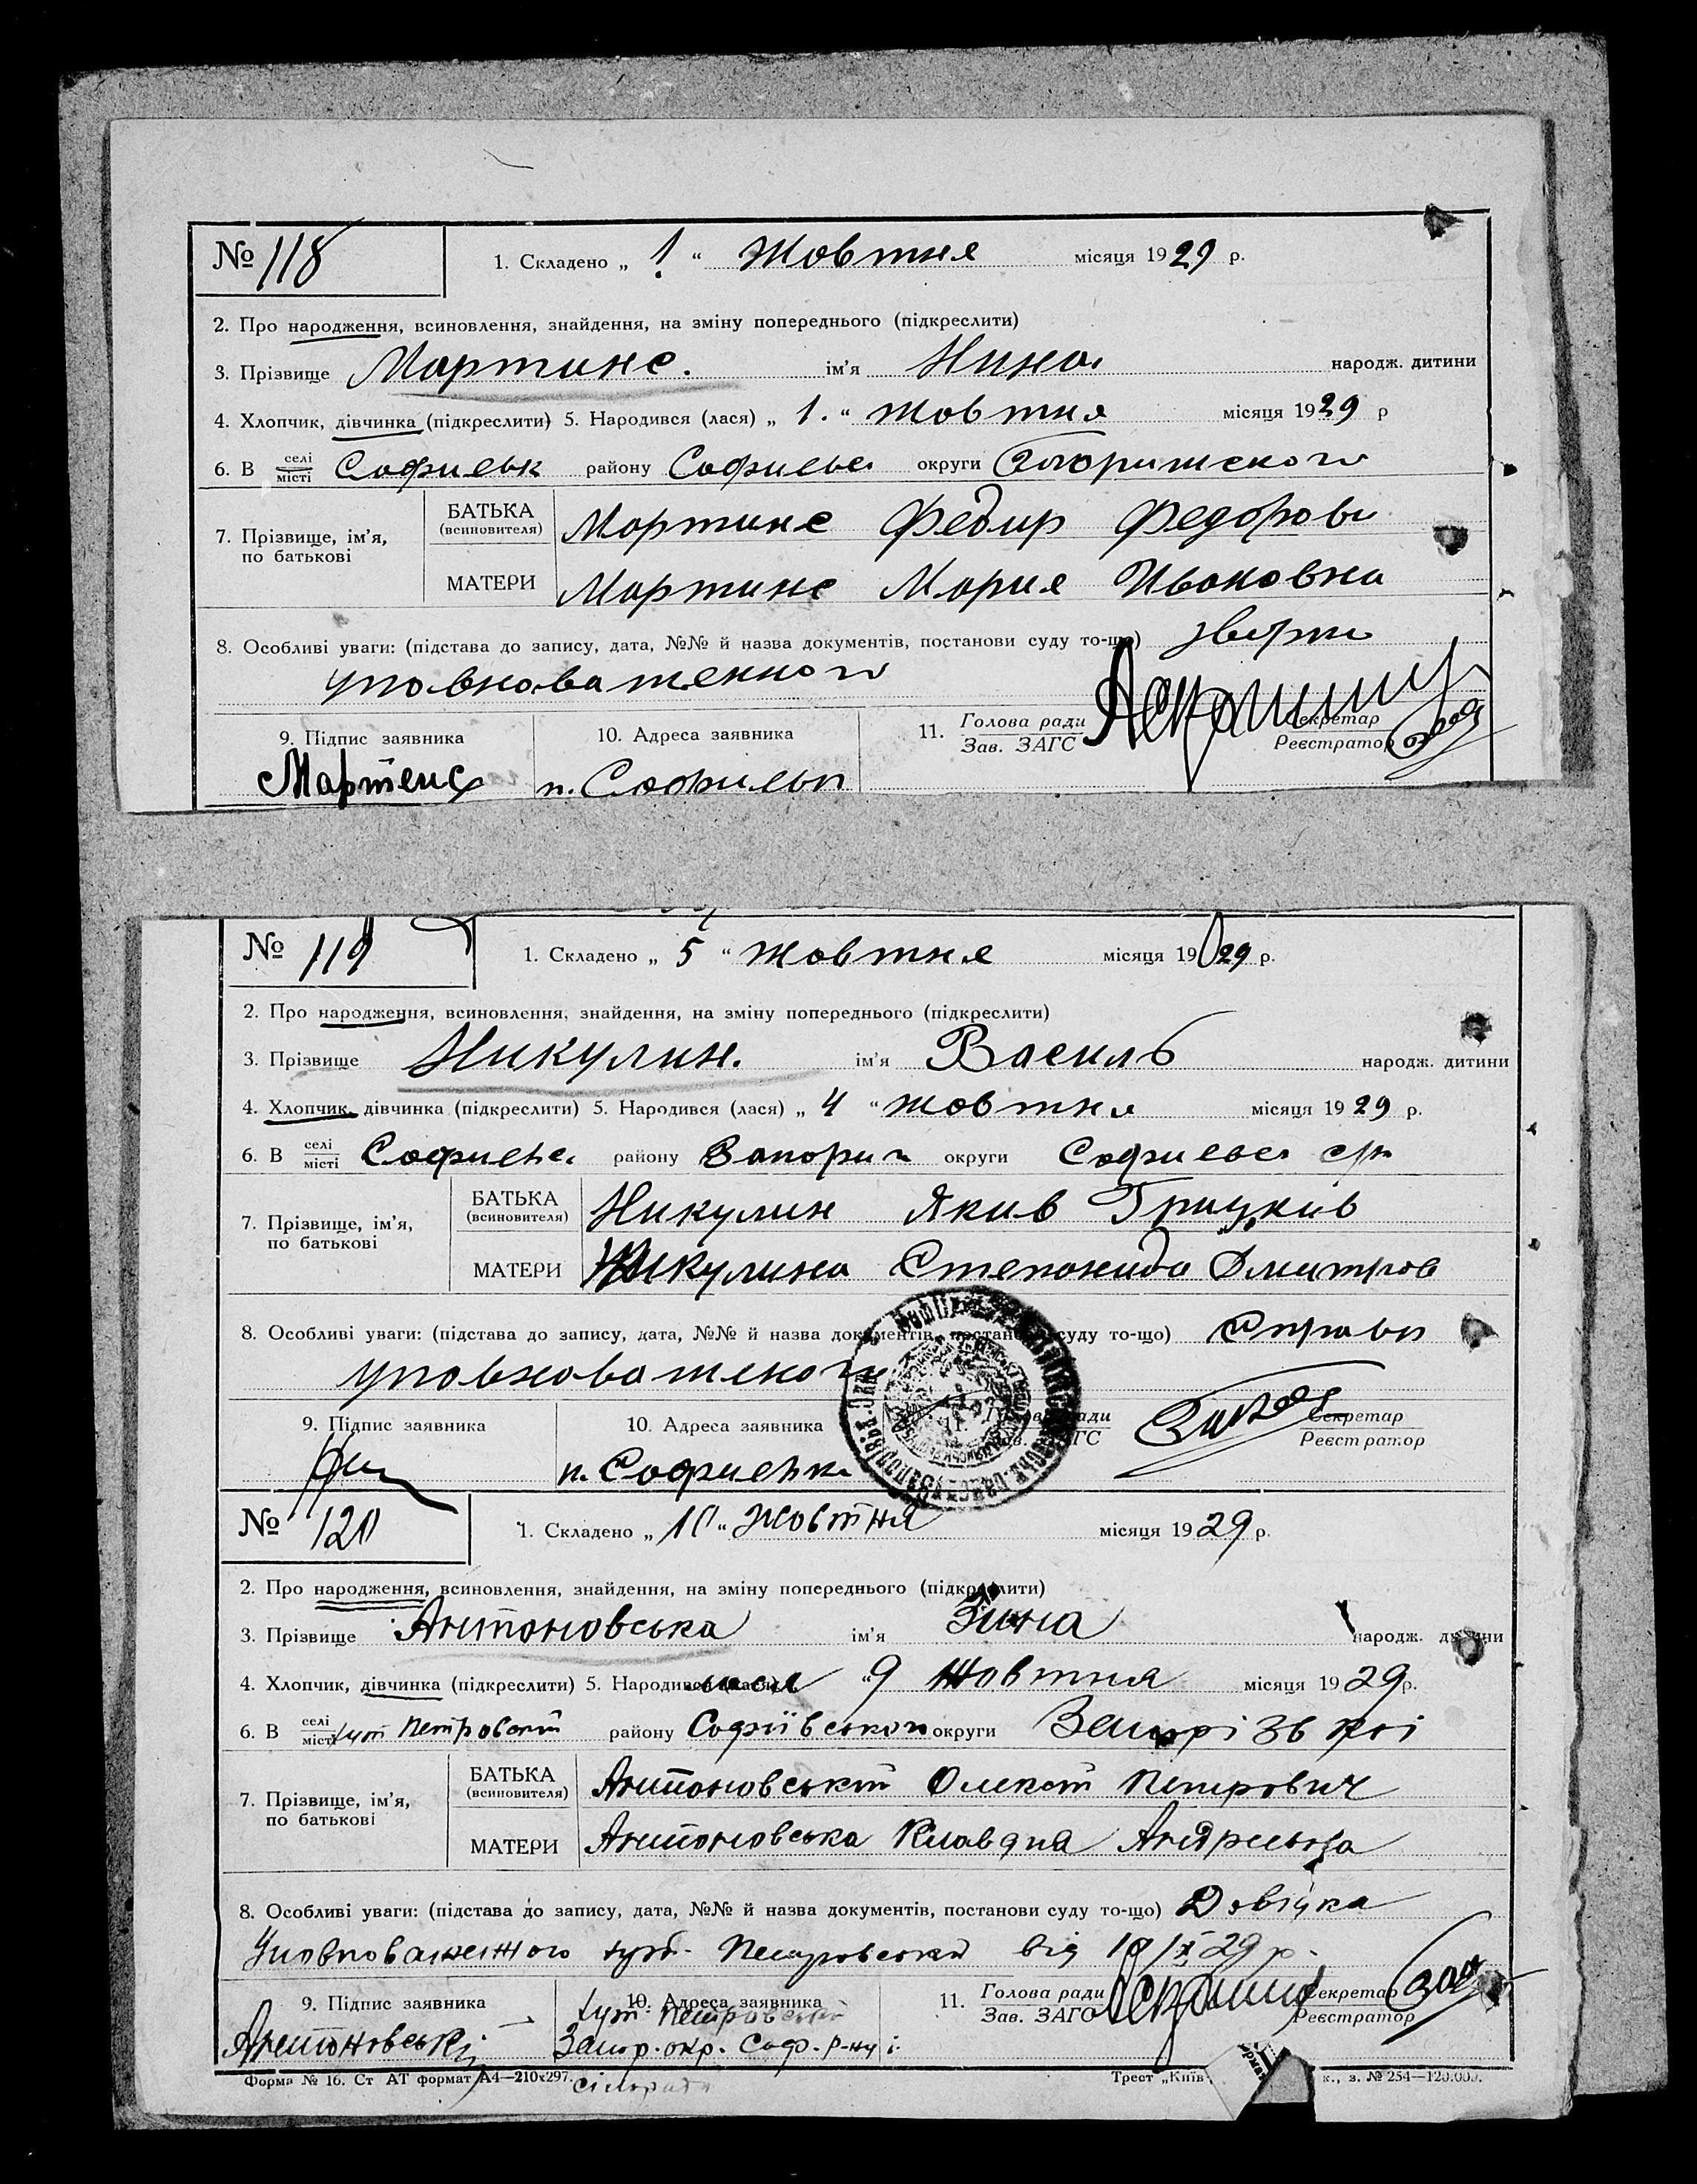 № 118 1. Складено „ 1 “ Жовтня місяця 1929 р.
2. Про народження, всиновлення, знайдення, на зміну попереднього (підкреслити)
3. Прізвище Мартинс. ім'я Нина народж. дитини
4. Хлопчик, дівчинка (підкреслити) 5. Народився (лася) „ 1. “ жовтня місяця 1929 р
6. В селі місті Софиевк району Софиевс округи
7. Прізвище, ім'я, по батькові
БАТЬКА (всиновителя) Мартинс Федир Федорови
МАТЕРИ Мартинс Мария Ивановна
8. Особливі уваги: (підстава до запису, дата, №№ й назва документів, постанови суду то-що)
уповноваженного
9. Підпис заявника 10. Адреса заявника 11. Голова ради Зав. ЗАГС Секретар Реєстратор
Мартенс
№ 119 1. Складено „ 5 “ жовтня місяця 1929 р.
2. Про народження, всиновлення, знайдення, на зміну попереднього (підкреслити)
3. Прізвище Никулин. ім'я Василь народж. дитини
4. Хлопчик, дівчинка (підкреслити) 5. Народився (лася) „ 4 “ жовтня місяця 1929 р.
6. В селі місті району Запориж округи Софиевс с/р
7. Прізвище, ім'я, по батькові
БАТЬКА (всиновителя) Никулин Якив Грицкив
МАТЕРИ Никулина Степанида Дмитров
8. Особливі уваги: (підстава до запису, дата, №№ й назва документів, постанови суду то-що)
уповноваженого
9. Підпис заявника 10. Адреса заявника 11. Голова ради Зав. ЗАГС Секретар Реєстратор
п. Софиевка
№ 120 1. Складено „ 10 “ жовтня місяця 1929 р.
2. Про народження, всиновлення, знайдення, на зміну попереднього (підкреслити)
3. Прізвище Антоновська ім'я Зина народж. дитини
4. Хлопчик, дівчинка (підкреслити) 5. Народився (лася) „ 9 Жовтня місяця 1929 р.
6. В селі місті хут Петровский району Софіївского округи
7. Прізвище, ім'я, по батькові
БАТЬКА (всиновителя) Антоновский Олексій Петрович
МАТЕРИ Антоновська Клавдия Андриевна
8. Особливі уваги: (підстава до запису, дата, №№ й назва документів, постанови суду то-що) Довідка
Уповноваженного хут. Петровский від 10/X 29 р.
9. Підпис заявника 10. Адреса заявника 11. Голова ради Зав. ЗАГС Секретар Реєстратор
хут. Петровский
Антоновський Запор. окр. Соф. р-ну
Форма № 16. Ст АТ формат А4—210х297. Трест „Київ к., з. № 254—120.000.